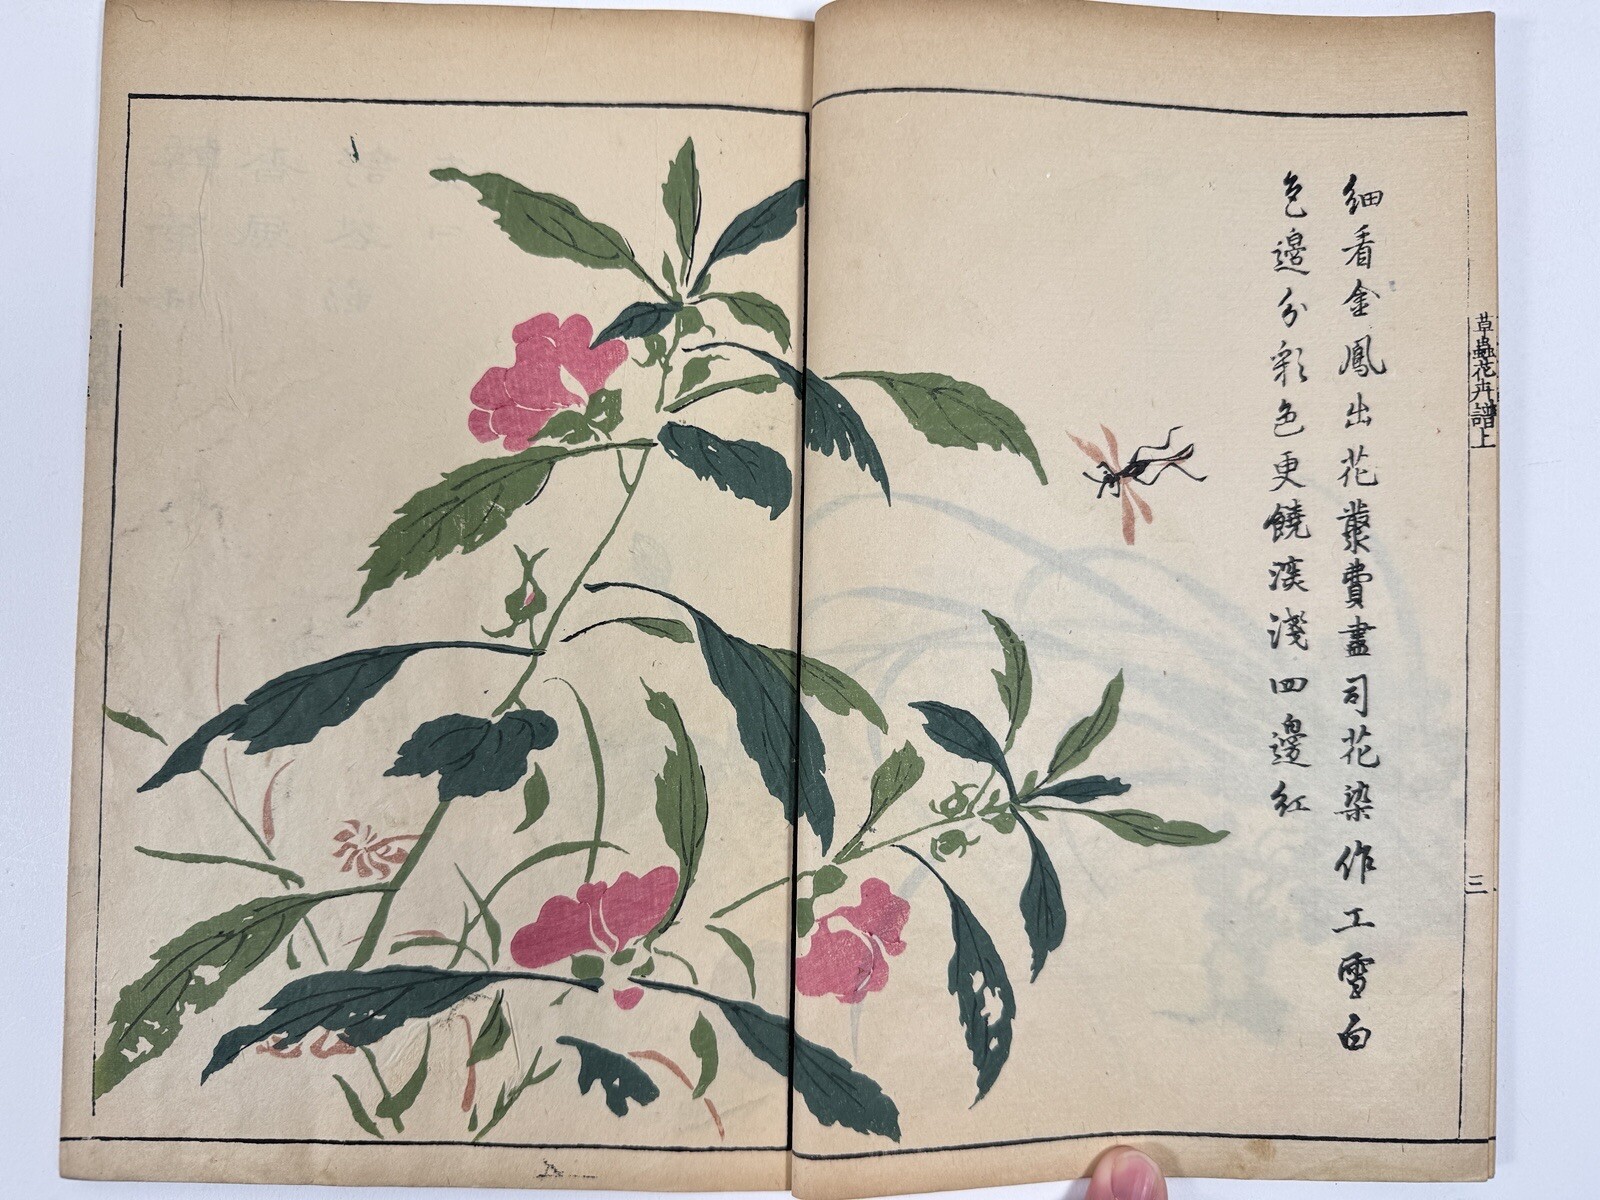 細看金鳳出花叢費盡司花染作工雪白
色邊分彩色更饒淡淺四邊紅
草蟲花卉譜上
三